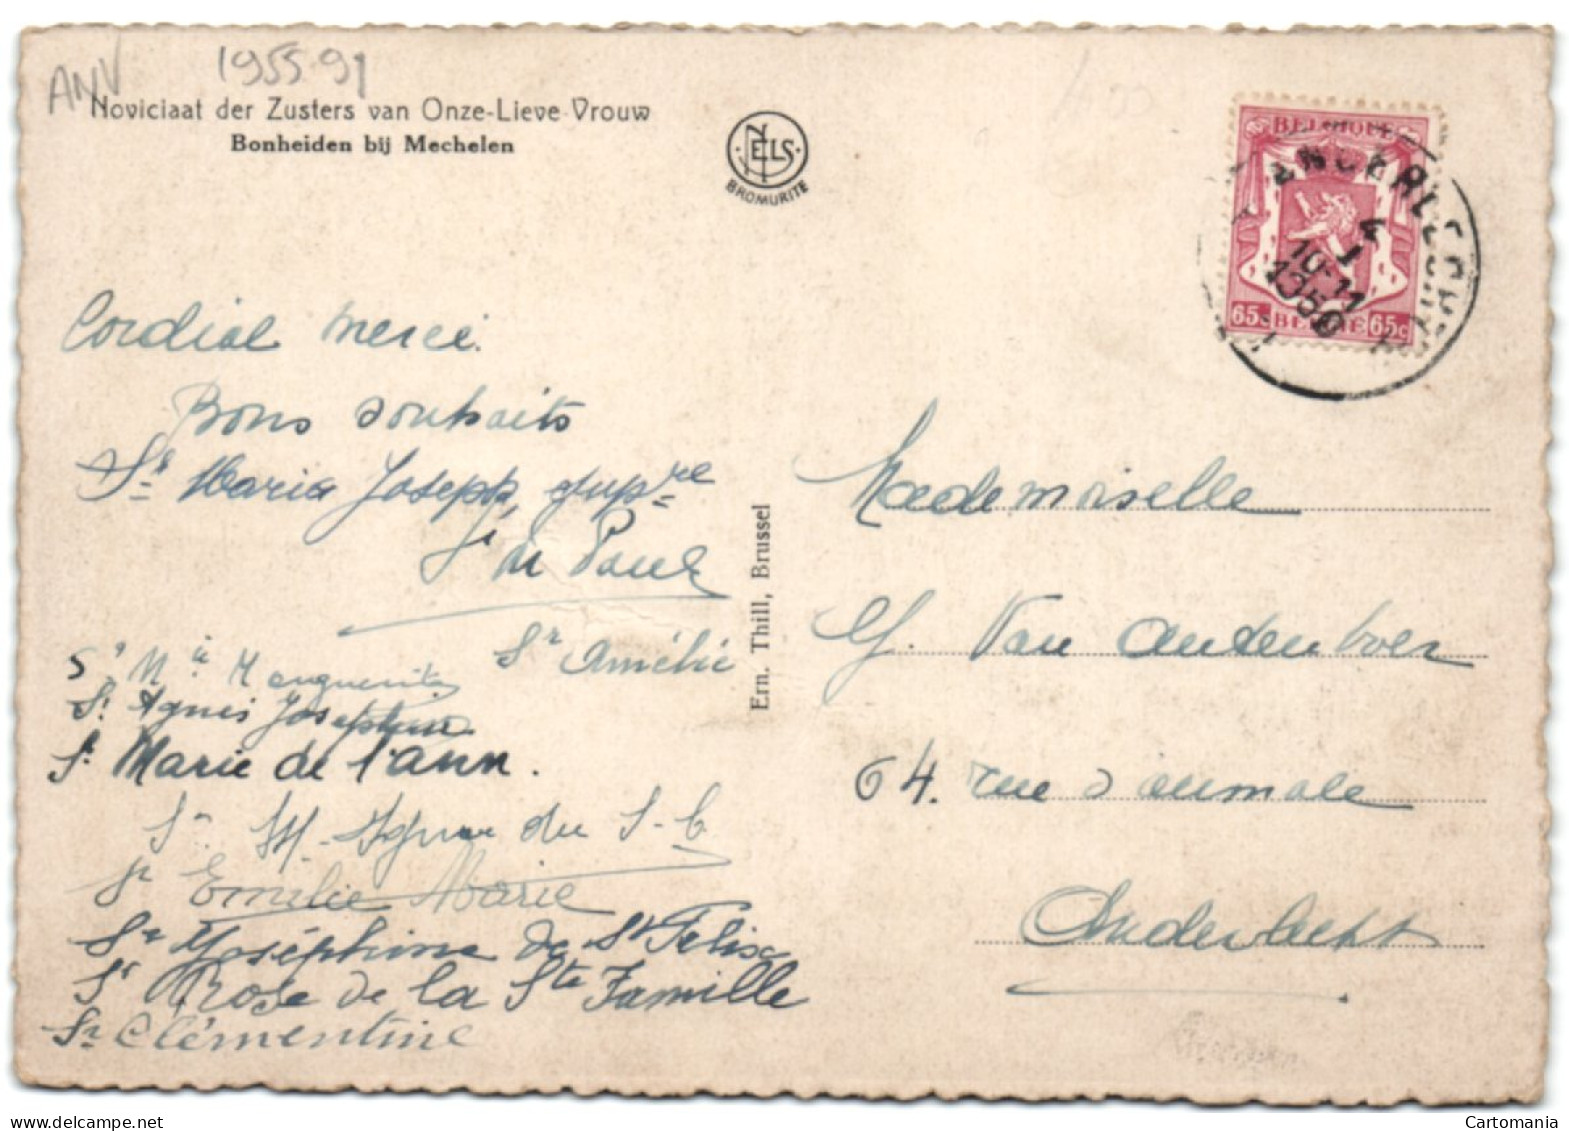 ANV 1955 91
Noviciaat der Zusters van Onze-Lieve-Vrouw
Bonheiden bij Mechelen
NELS
BROMURITE
BELGIQUE
65c BELGIË 65c
4
I
10-11
1950
Cordial merci.
Bons souhaits
Sr Maria Joseph, supre
Sr de Paul
Sr Amélie
Sr Mie Marguerite
Sr Agnès Joséphine
Sr Marie de l'ann.
Sr M. Agnes du S-C
Sr Emilie Marie
Sr Joséphine de St Félix
Sr Rose de la Ste Famille
Sr Clémentine
Ern. Thill, Brussel
Mademoiselle
Van
64. rue d'aumale
Anderlecht
Cartomania